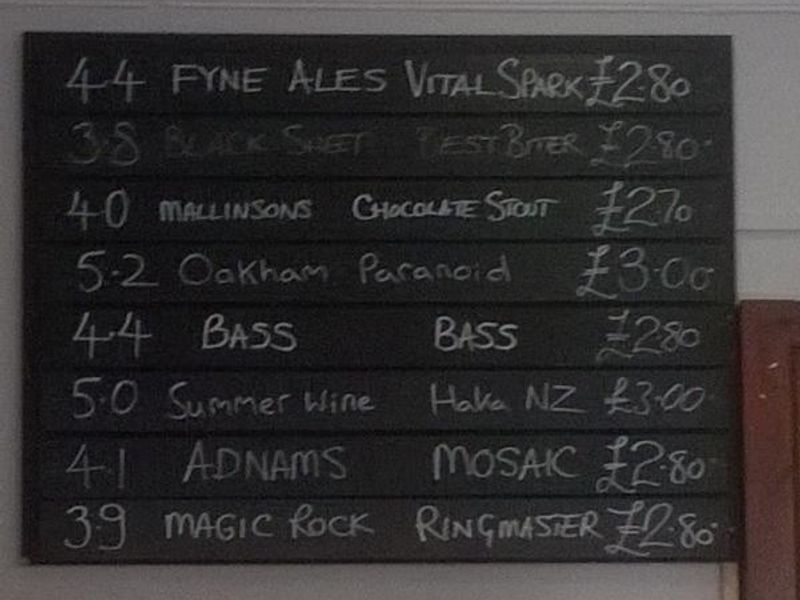 4.4 FYNE ALES VITAL SPARK £2.80
3.8 BLACK SHEEP BEST BITTER £2.80
4.0 MALLINSONS CHOCOLATE STOUT £2.70
5.2 Oakham Paranoid £3.00
4.4 BASS BASS £2.80
5.0 Summer Wine Haka NZ £3.00
4.1 ADNAMS MOSAIC £2.80
3.9 MAGIC ROCK RINGMASTER £2.80